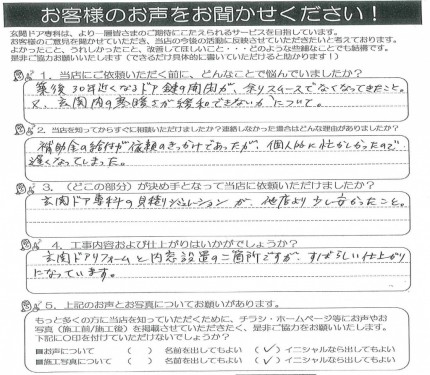 お客様のお声をお聞かせください！
玄関ドア専科は、より一層皆さまのご期待にこたえられるサービスを目指しています。
お客様のご意見をお聞かせいただき、当店の今後の活動に反映させていただきたいと考えております。
よかったこと、うれしかったこと、改善してほしいこと・・・どのような些細なことでも結構です。
是非ご協力お願いいたします（できるだけ具体的に書いていただけると助かります！）
1．当店にご依頼いただく前に、どんなことで悩んでいましたか？
築後30年近くなるドア鍵の開閉が、余りスムーズでなくなってきたこと。
又、玄関内の寒暖さが緩和できないかについて。
2．当店を知ってからすぐに相談いただけましたか？連絡しなかった場合はどんな理由がありましたか？
補助金の給付が依頼のきっかけであったが、個人的に忙しかったので
遅くなってしまった。
3．（どこの部分）が決め手となって当店に依頼いただけましたか？
玄関ドア専科の見積りシュミレーションが、他店より少し安かったこと。
4．工事内容および仕上がりはいかがでしょうか？
玄関ドアリフォームと内窓設置の二箇所ですが、すばらしい仕上がり
になっています。
5．上記のお声とお写真についてお願いがあります。
もっと多くの方に当店を知っていただくために、チラシ・ホームページ等にお声やお
写真（施工前/施工後）を掲載させていただきたく、是非ご協力をお願いいたします。
下記に○印を付けていただけないでしょうか？
■お声について （ ）名前を出してもよい （✓）イニシャルなら出してもよい
■施工写真について （ ）名前を出してもよい （✓）イニシャルなら出してもよい